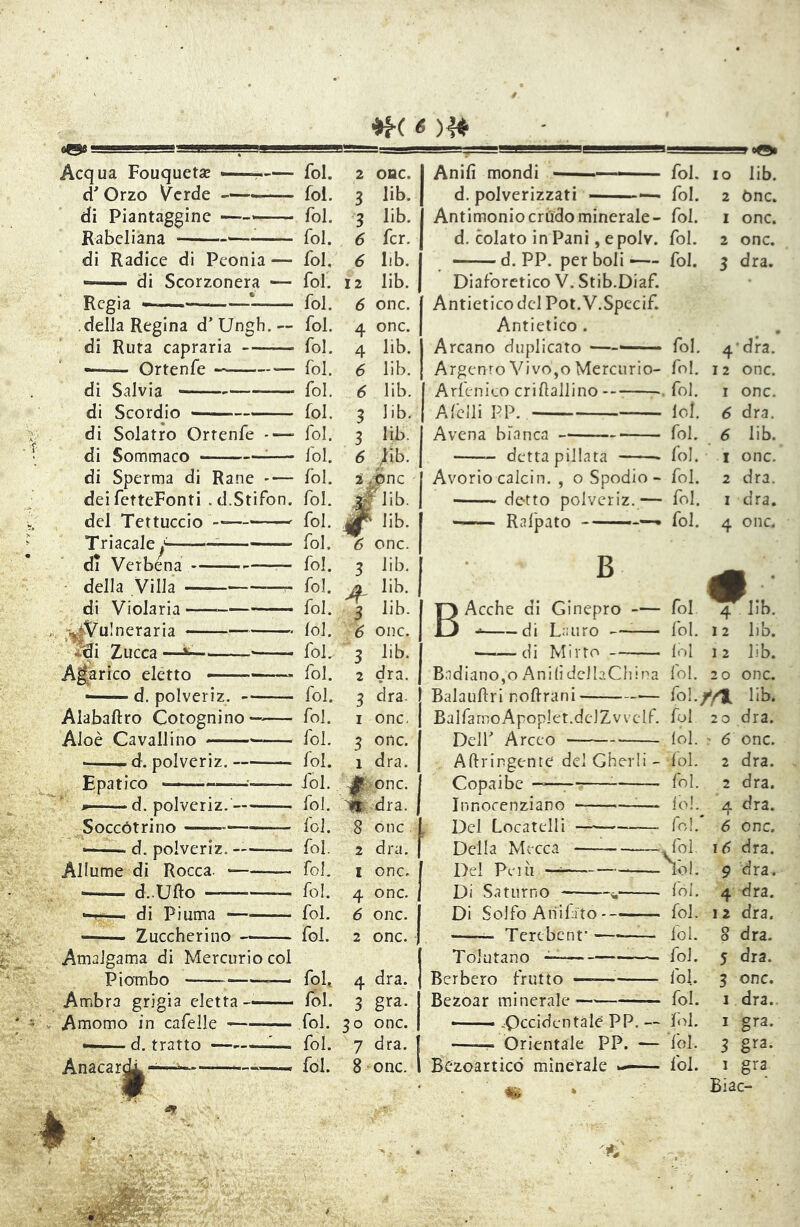 ( 6 )
Acqua Fouquetæ fol. 2 onc.
d'Orzo Verde fol. 3 lib.
di Piantaggine fol. 3 lib.
Rabeliana fol. 6 ſcr.
di Radice di Peonia fol. 6 lib.
di Scorzonera fol. 12 lib.
Regia fol. 6 onc.
della Regina d'Ungh. fol. 4 onc.
di Ruta capraria fol. 4 lib.
Ortenſe fol. 6 lib.
di Salvia fol. 6 lib.
di Scordio fol. 3 lib.
di Solatro Ortenſe fol. 3 lib.
di Sommaco fol. 6 lib.
di Sperma di Rane fol. 2 onc
dei ſetteFonti .d.Stifon. fol. lib.
del Tettuccio fol. lib.
Triacale fol. 6 onc.
di Verbena fol. 3 lib.
della Villa fol. 4 lib.
di Violaria fol. 3 lib.
Vulneraria fol. 6 onc.
di Zucca fol. 3 lib.
Agarico eletto fol. 2 dra.
d. polveriz. fol. 3 dra.
Alabaſtro Cotognino fol. 1 onc.
Aloè Cavallino fol. 3 onc.
d. polveriz. fol. 1 dra.
Epatico fol. onc.
d. polveriz. fol. dra.
Soccótrino fol. 8 onc
d. polveriz. fol. 2 dra.
Allume di Rocca. fol. 1 onc.
d. Uſto fol. 4 onc.
di Piuma fol. 6 onc.
Zuccherino fol. 2 onc.
Amalgama di Mercurio col
Piombo fol. 4 dra.
Ambra grigia eletta fol. 3 gra.
Amomo in caſelle fol. 30 onc.
d. tratto fol. 7 dra.
Anacardi fol. 8 onc.
Aniſi mondi fol. 10 lib.
d. polverizzati fol. 2 onc.
Antimonio crudo minerale- fol. 1 onc.
d. colato in Pani, e polv. fol. 2 onc.
d. PP. per boli fol. 3 dra.
Diaforetico V. Stib.Diaf.
Antietico del Pot.V.Specif.
Antietico.
Arcano duplicato fol. 4 dra.
Argento Vivo,o Mercurio- fol. 12 onc.
Arſenico criſtallino fol. 1 onc.
Aſelli PP. fol. 6 dra.
Avena bianca fol. 6 lib.
detta pillata fol. 1 onc.
Avorio calcin. , o Spodio - fol. 2 dra.
detto polveriz. fol. 1 dra.
Raſpato fol. 4 onc.
B
BAcche di Ginepro fol 4 lib.
di Lauro fol. 12 lib.
di Mirto fol 12 lib.
Badiano,o Aniſi dellaChina fol. 20 onc.
Balauſtri noſtrani fol. lib.
BalſamoApoplet.delZvvelf. fol 20 dra.
Dell' Arceo fol. 6 onc.
Aſtringente del Gherli - fol. 2 dra.
Copaibe fol. 2 dra.
Innocenziano fol. 4 dra.
Del Locatelli fol. 6 onc.
Della Mecca fol 16 dra.
Del Perù fol. 9 dra.
Di Saturno fol. 4 dra.
Di Solfo Aniſato fol. 12 dra.
Terebent' fol. 8 dra.
Tolutano fol. 5 dra.
Berbero frutto fol. 3 onc.
Bezoar minerale fol. 1 dra.
Occidentale PP. fol. 1 gra.
Orientale PP. fol. 3 gra.
Bezoartico minerale fol. 1 gra
Biac-